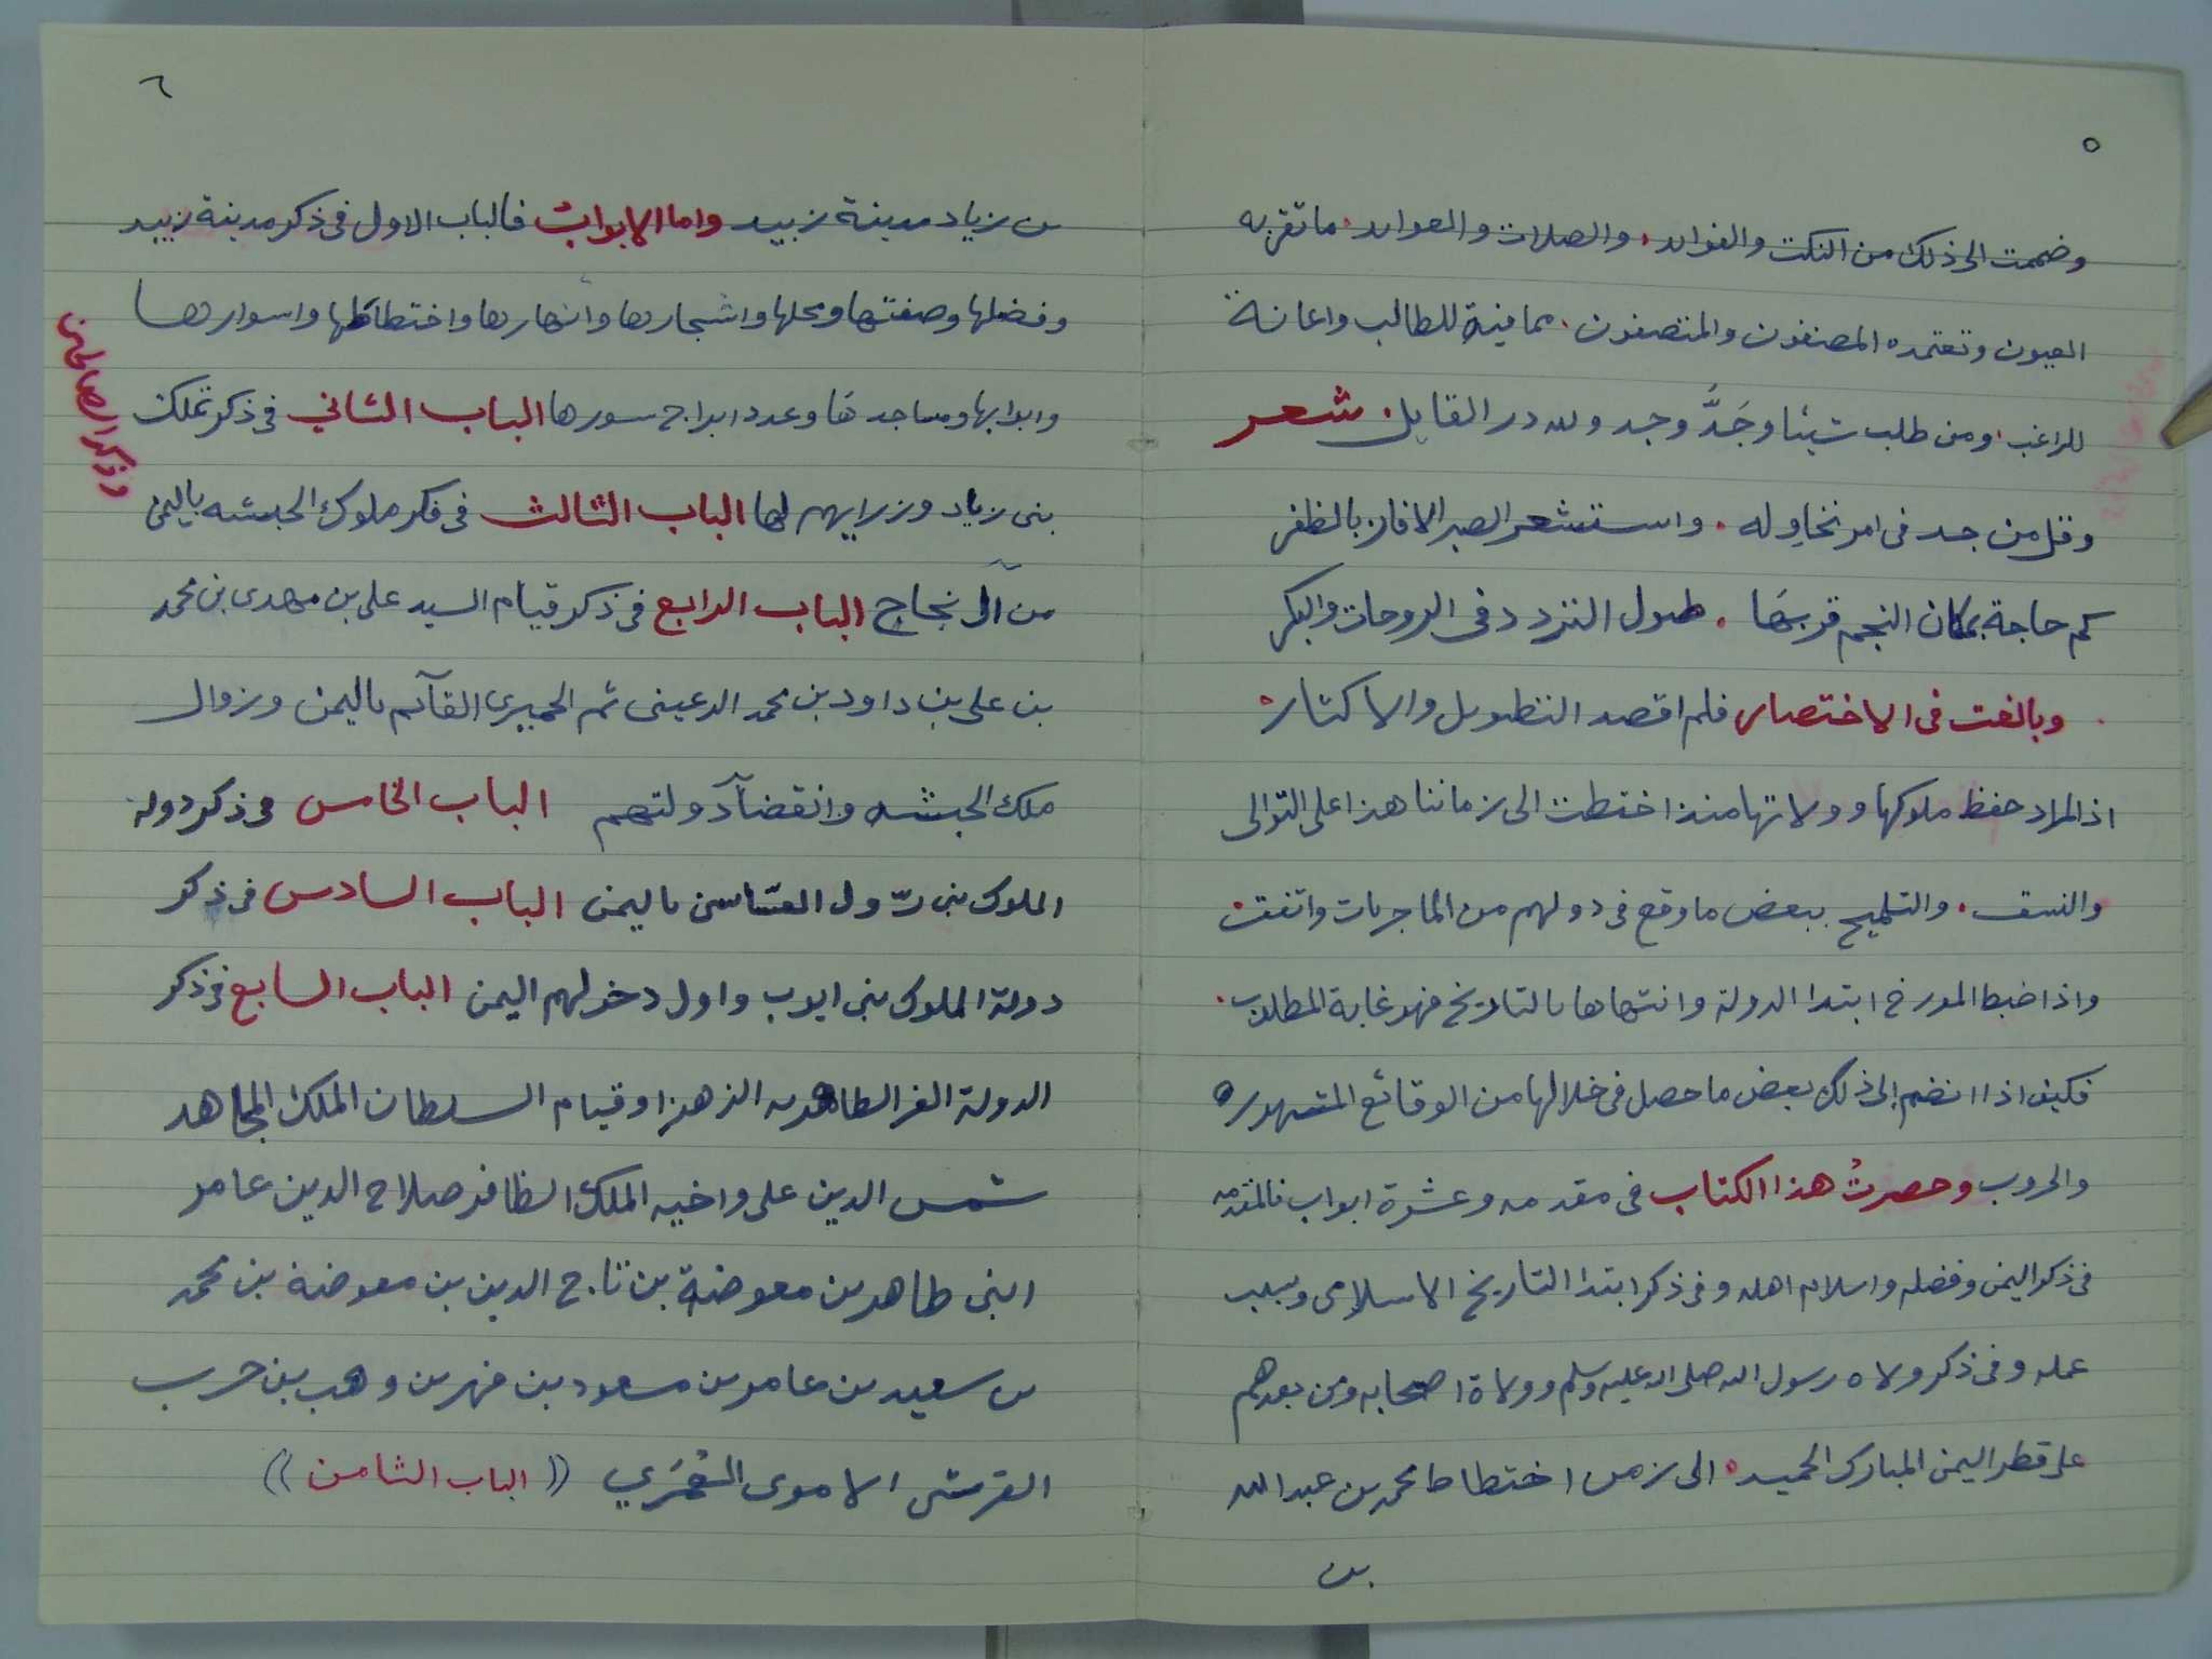 ٥
وضممت الى ذلك من النكت والفوايد. والصلات والعوايد. ما تقر به
العيون وتعتمده المصنفون والمتصفون. مما فيه للطالب واعانة
للراغب. ومن طلب شيئا وجَدَّ وجد ولله در القايل. شعر
وقل من جد فى امر يحاوله. واستشعر الصبر الا فاز بالظفر
كم حاجة بمكان النجم قربها. طول التردد فى الروحات والبكر
وبالغت فى الاختصار فلم اقصد التطويل والاكثار.
اذ المراد حفظ ملوكها وولاتها منذ اختطت الى زماننا هذا على التوالى
والنسق. والتلميح ببعض ما وقع فى دولهم من الماجريات واتفقت.
واذا ضبط المورخ ابتدا الدولة وانتهاها بالتاريخ فهو غاية المطلوب.
فكيف اذا انضم الى ذلك بعض ما حصل فى خلالها من الوقائع المشهوره
والحروب وحصرتُ هذا الكتاب فى مقدمه وعشرة ابواب فالمقدمه
فى ذكر اليمن وفضله واسلام اهله وفى ذكر ابتدا التاريخ الاسلامى وسبب
عمله وفى ذكر ولاه رسول الله صلى الله عليه وسلم وولاة اصحابه ومن بعدهم
على قطر اليمن المبارك الحميد. الى زمن اختطاط محمد بن عبد الله
بن
٦
بن زياد مدينة زبيد واما الابواب فالباب الاول فى ذكر مدينة زبيد
وفضلها وصفتها ومحلها واشجارها وانهارها واختطاطها واسوارها
وابوابها ومساجدها وعدد ابراج سورها الباب الثاني فى ذكر تملك
بنى زياد ووزرايهم لها الباب الثالث فى ذكر ملوك الحبشه باليمن
من آل نجاح الباب الرابع فى ذكر قيام السيد على بن مهدى بن محمد
بن على بن داود بن محمد الرعينى ثم الحميرى القآئم باليمن وزوال
ملك الحبشه وانقضآ دولتهم الباب الخامس فى ذكر دولة
الملوك بنى رسول الغسّانيين باليمن الباب السادس فى ذكر
دولة الملوك بنى ايوب واول دخولهم اليمن الباب السابع فى ذكر
الدولة الغرا الطاهريه الزهرا وقيام السلطان الملك المجاهد
شمس الدين على واخيه الملك الظافر صلاح الدين عامر
ابنى طاهر بن معوضة بن تاج الدين بن معوضة بن محمد
بن سعيد بن عامر بن مسعود بن فهر بن وهب بن حرب
القرشى الاموى العُمَري ((الباب الثامن))
وذكر الصالحين